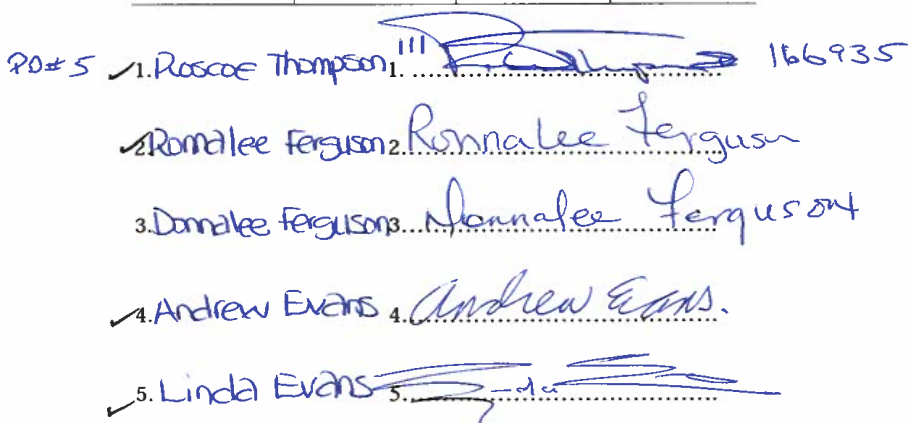 PD# 5 ✓1. Roscoe Thompson III 1. 166935
✓2. Ronnalee Ferguson 2. Ronnalee Ferguson
3. Donnalee Ferguson 3. Donnalee Ferguson
✓4. Andrew Evans 4. Andrew Evans.
✓5. Linda Evans 5.